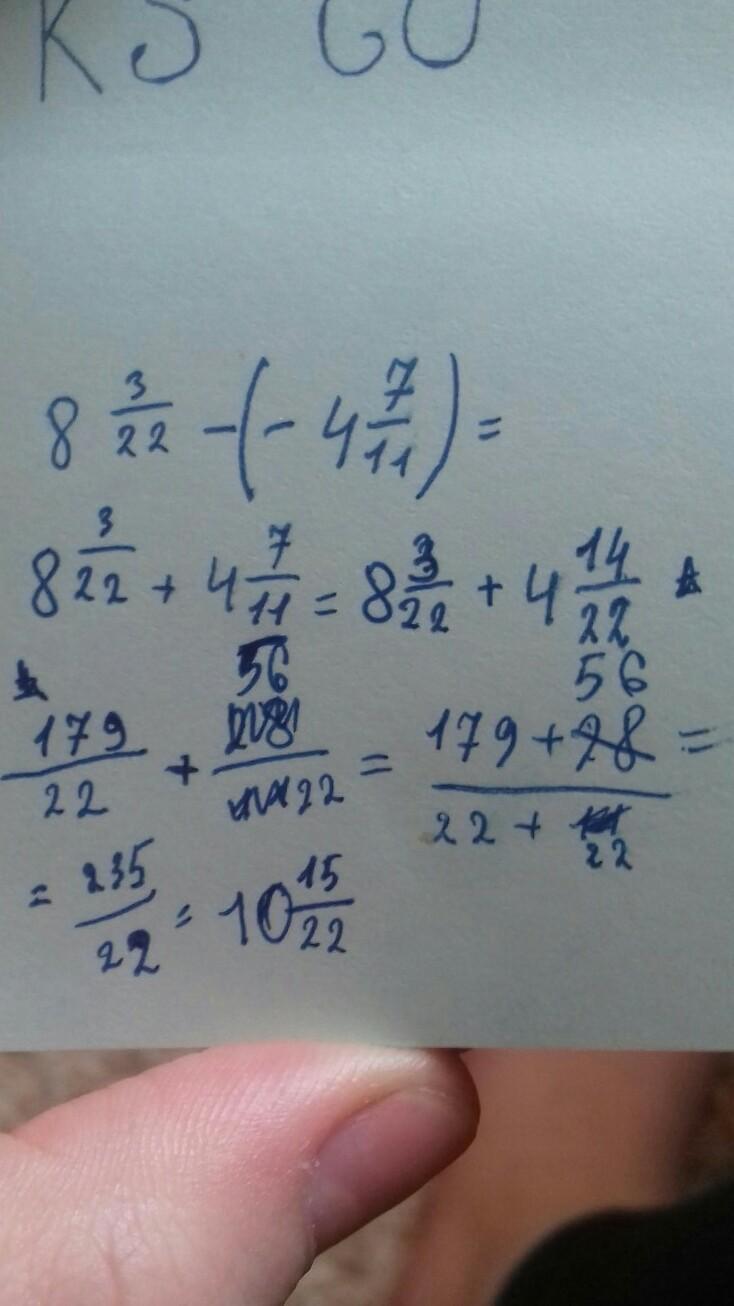 KS GO
8 3/22 -(- 4 7/11) =
8 3/22 + 4 7/11 = 8 3/22 + 4 14/22
56 56
179/22 + /22 = 179 + 28/22 + 22 =
= 235/22 = 10 15/22